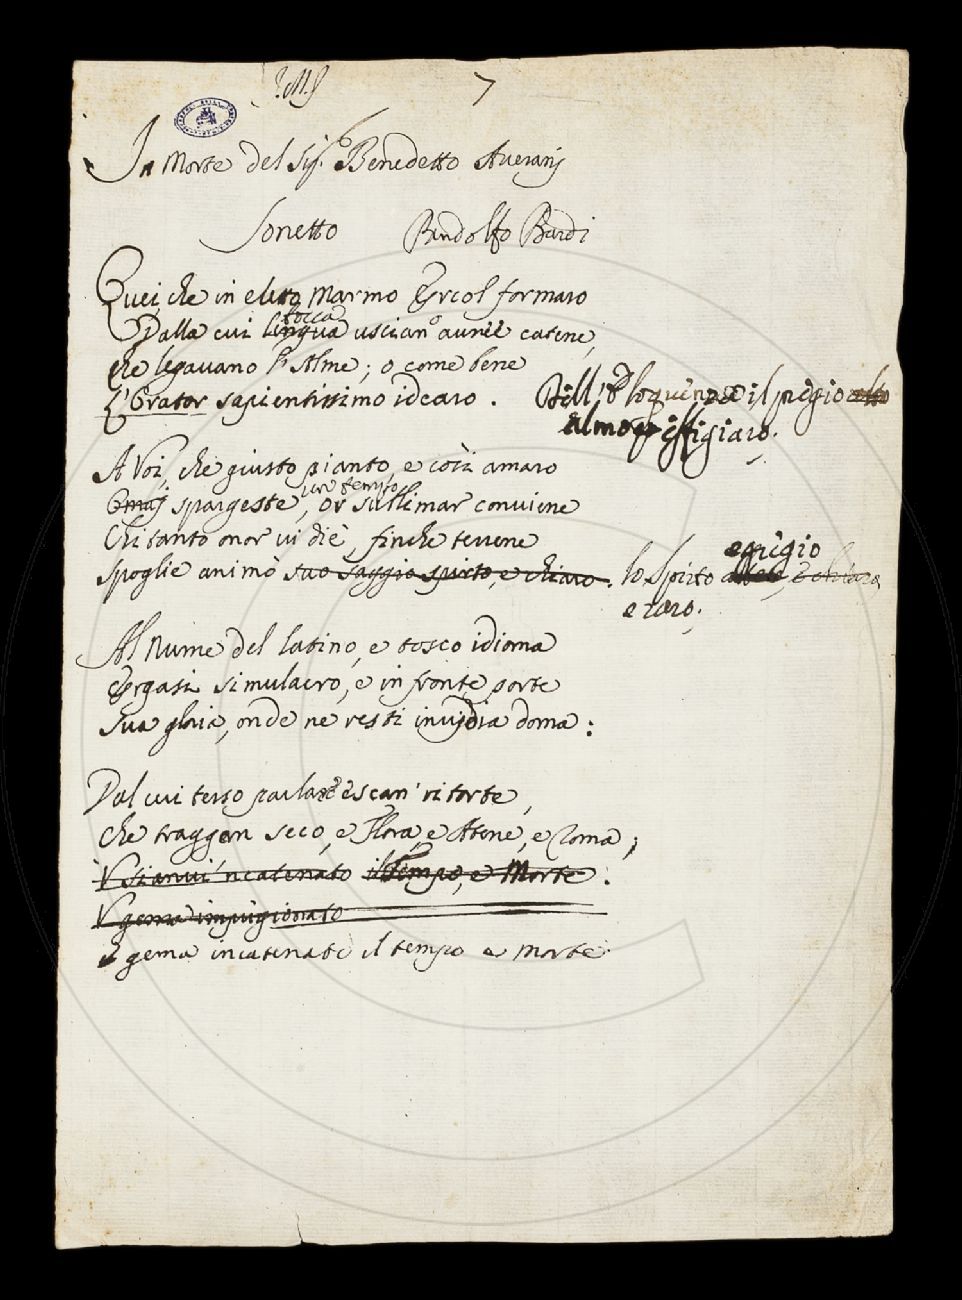 7
In Morte del Sig.r Benedetto Averanj
Sonetto Bandolfo Bardi
Quei, che in eletto Marmo Ercol formaro
bocca
Dalla cui lingua uscian° auree catene,
che legavano l'Alme; o come bene
L'Orator sapientissimo idearo. Dell'Eloquenza il pregio alto
almo effigiaro.
A Voi, che giusto pianto, e così amaro
un tempo
Omaj spargeste, or sublimar conviene
Chi tanto onor vi diè, finche terrene
Spoglie animò suo saggio spirto, e chiaro. lo Spirto e chiaro,
egregio
e raro.
Al Nume del latino, e tosco idioma
Ergasi simulacro, e in fronte porte
Sua gloria, onde ne resti invidia doma:
Dal cui terso parlare escan' ritorte,
che traggan seco, e Flora, e Atene, e Roma;
V' sianvi 'ncatenato il Tempo, e Morte.
V' gema imprigionato
e gema incatenati il tempo e morte